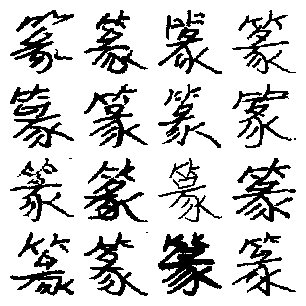 篆篆篆篆
篆篆篆篆
篆篆篆篆
篆篆篆篆